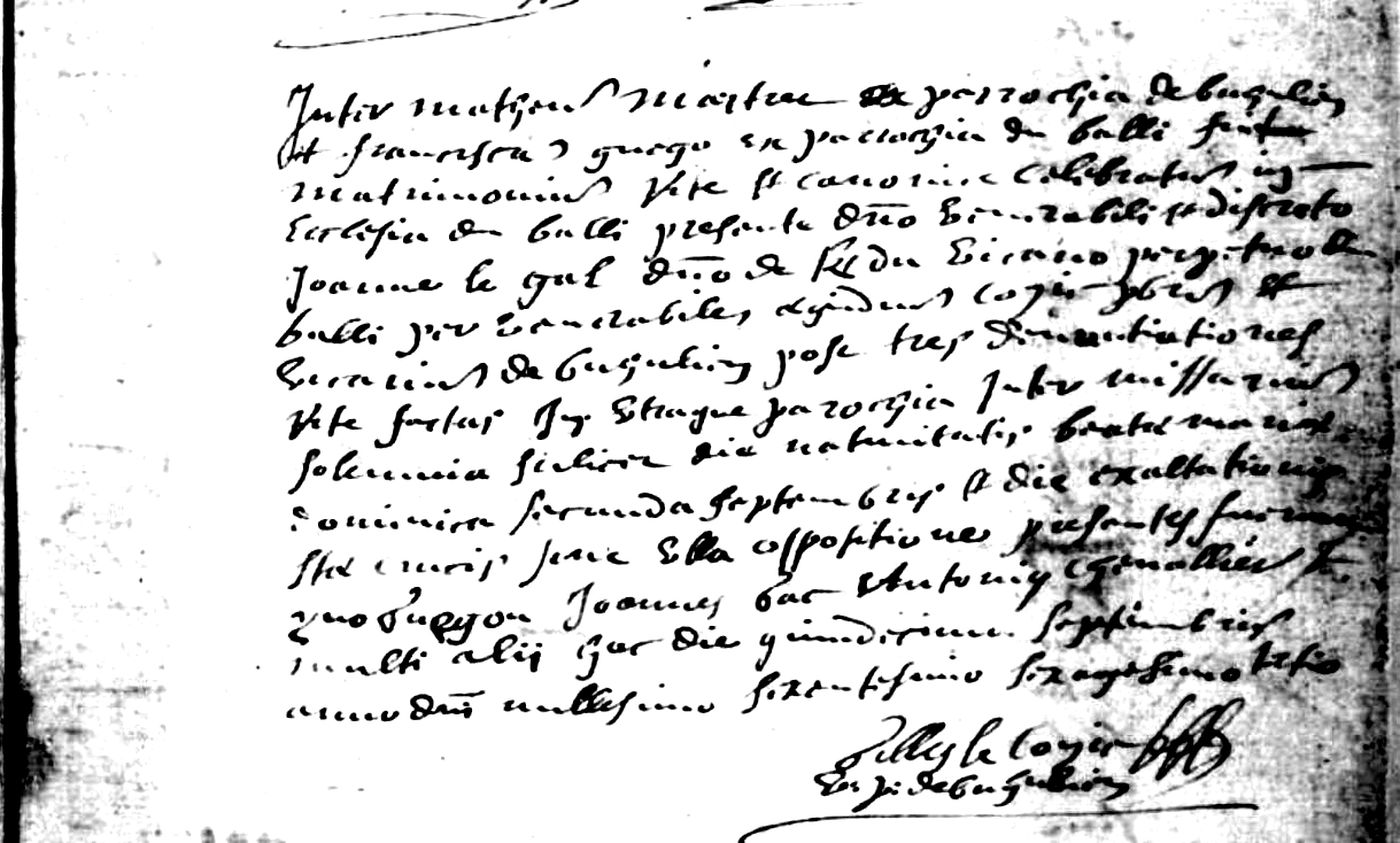 Inter matheum Mestric ex parrochia de buhulien
Et francisca guego ex parrochia de bulli
matrimonium rite et canonice celebratum in
Ecclesia de bulli presente dño venerabili et discreto
Joanne le gal dño de vicario perpetuo de
bulli per venerabilem egidium coz prbrum et
vicarium de buhulien post tres denuntiationes
rite factas in utraque parochia Inter missarum
solemnia scilicet die natiuitatis beatæ mariæ
dominica secunda septembris et die exaltationis
stæ crucis sine ulla oppositione presentes fuerunt
Joannes bac Antonius cheuallier
multi alij hac die quindecima septembris
anno dñi millesimo sexentesimo sexagesimo tertio
Gilles le
de buhulien